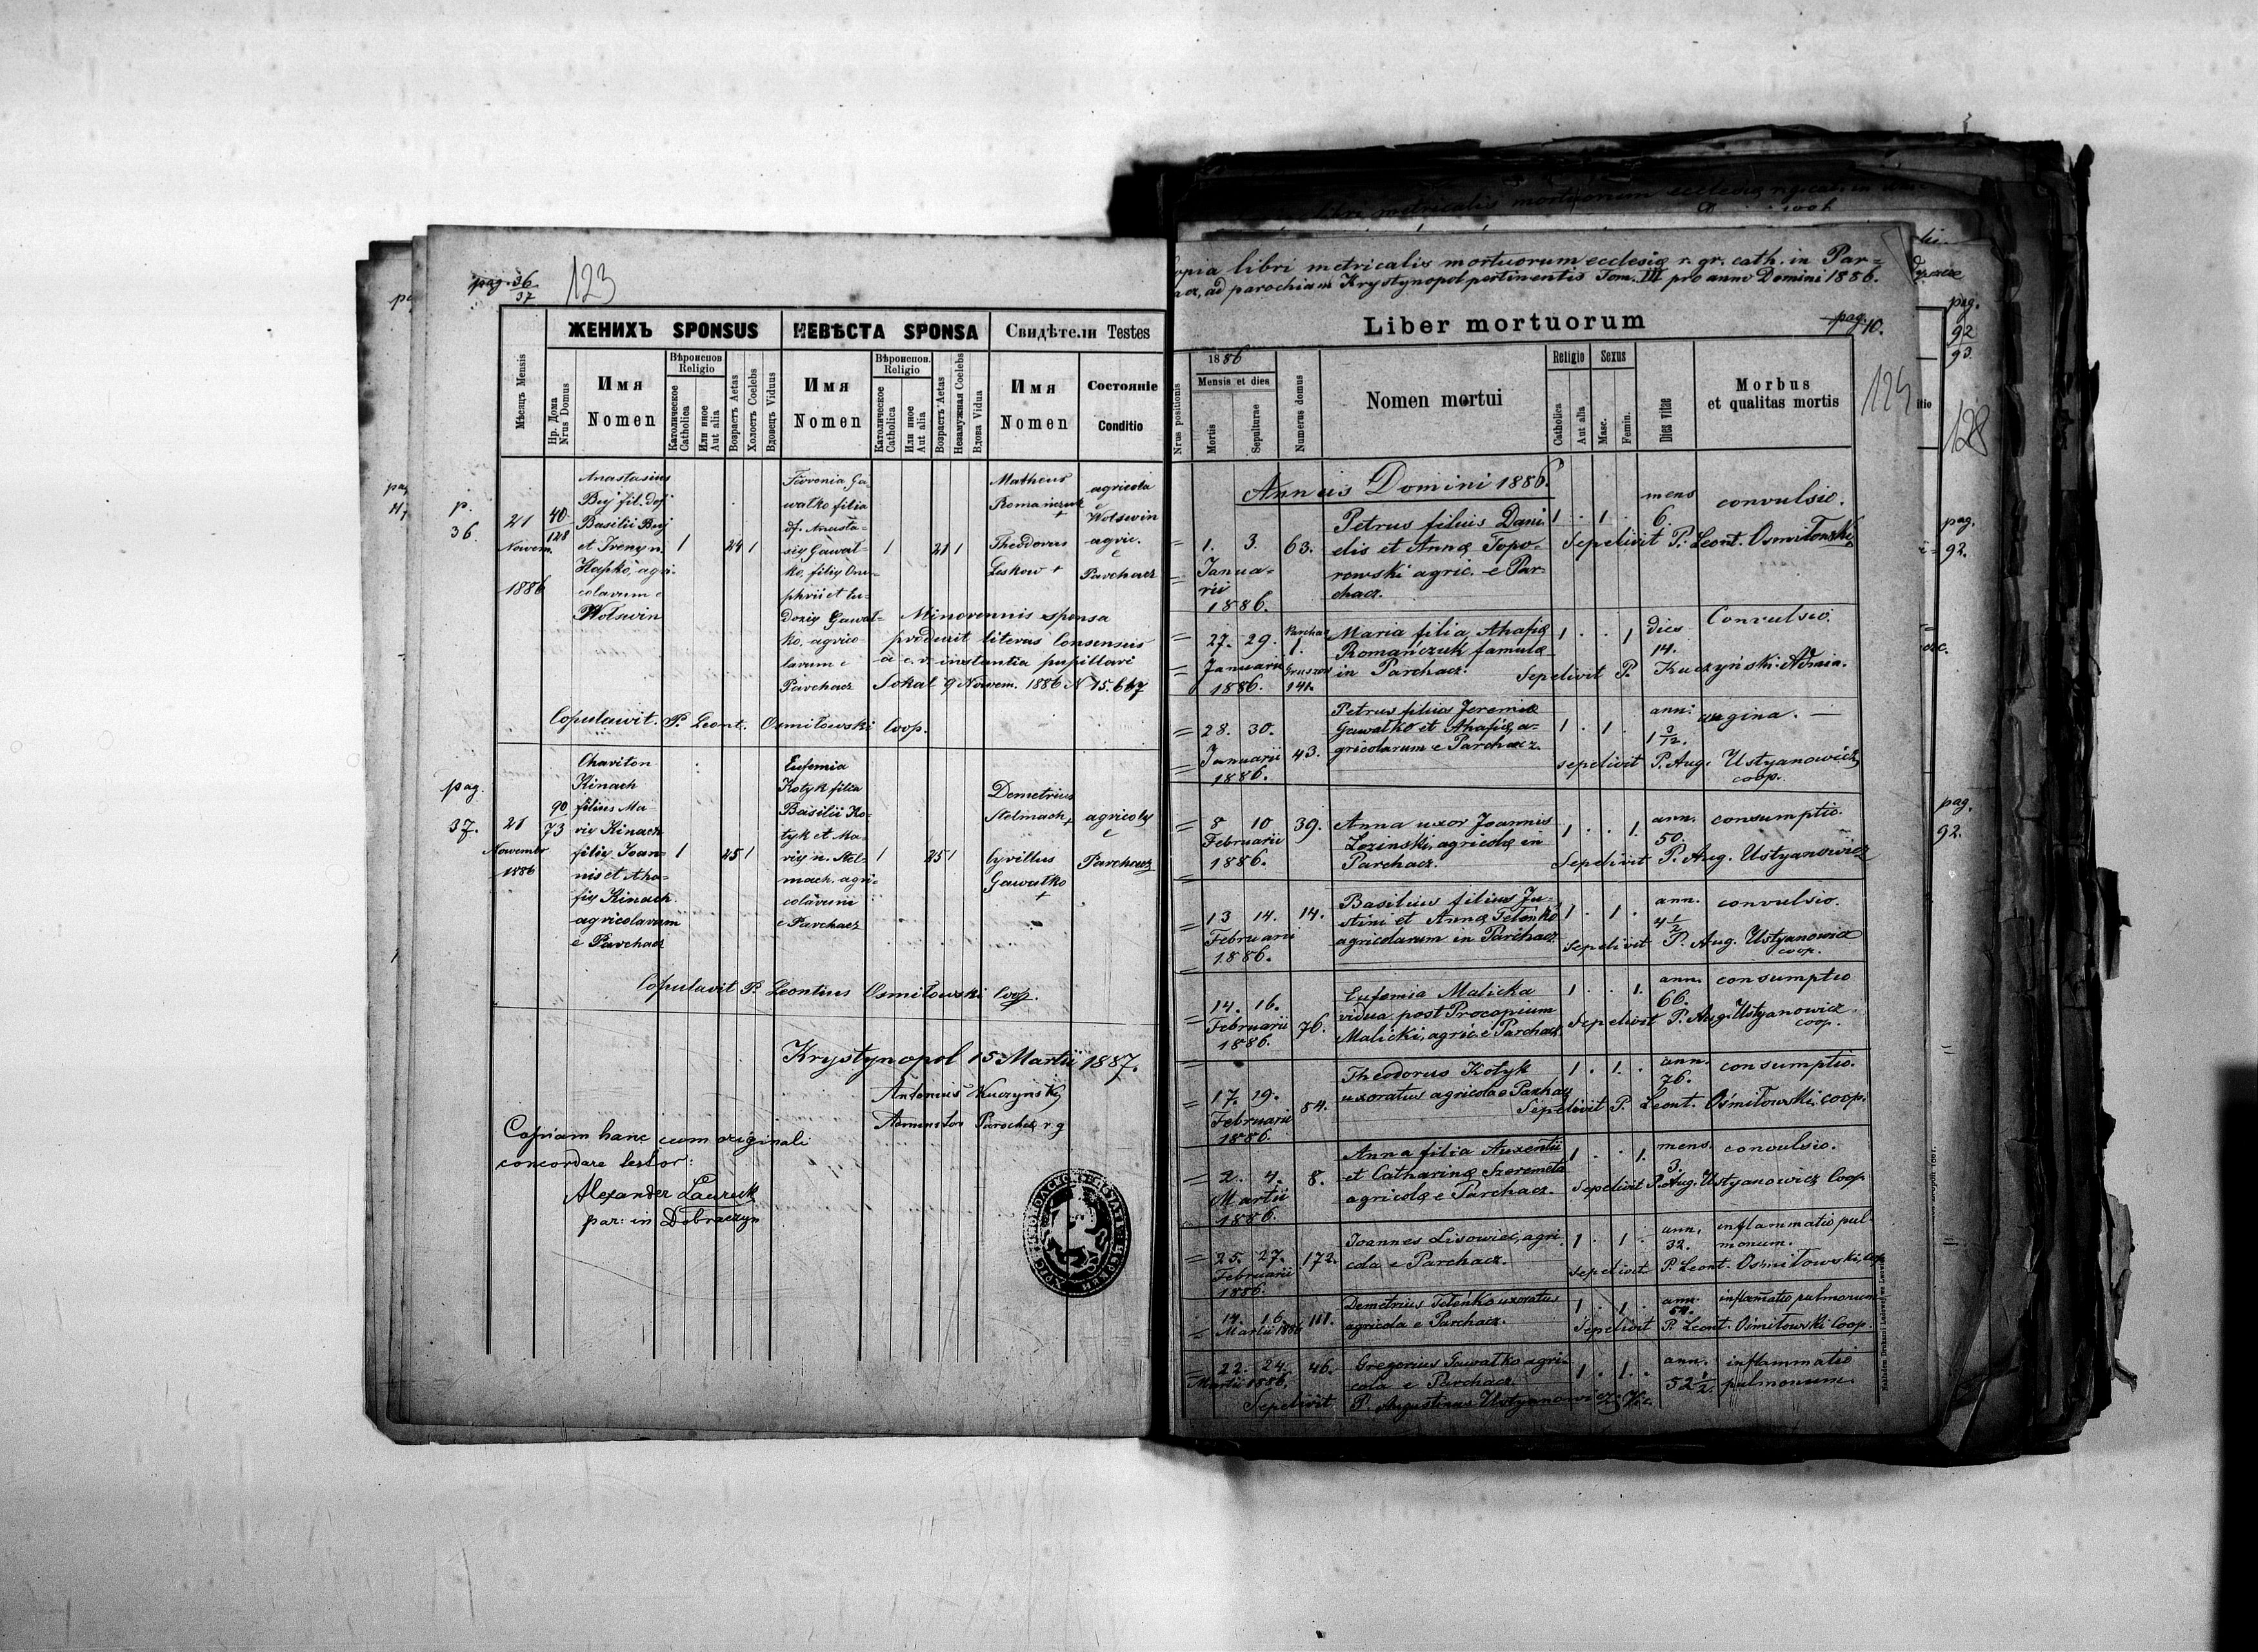 pag. 36
37
123
ЖЕНИХЪ SPONSUS
НЕВѢСТА SPONSA
Свидѣтели Testes
Мѣсяцъ Mensis
Нр. Дома
Nrus Domus
Имя
Nomen
Вѣроиспов.
Religio
Католическое
Catholica
Или иное
Aut alia
Возрастъ Aetas
Холостъ Coelebs
Вдовецъ Viduus
Имя
Nomen
Вѣроиспов.
Religio
Католическое
Catholica
Или иное
Aut alia
Возрастъ Aetas
Незамужная Coelebs
Вдова Vidua
Имя
Nomen
Состоянiе
Conditio
p.
36.
21
Novem.
1886
40
128
Anastasius
Buj fil. def.
Basilii Buj
et Irenę n.
Hapko, agri-
colarum e
Wolswin
1
24 1
Fevronia Ga-
walko filia
df. Anasta-
się Gawal-
ko, filię Onu-
phrii et Eu-
doxię Gawal-
ko, agrico-
larum e
Parchacz
1
21 1
Matheus
Romańczuk
+
Theodorus
Leskow +
agricola
e
Wolswin
agric.
e
Parchacz
Minorennis sponsa
produxit literas consensus
a c. r. instantia pupillari
Sokal 9 Novem. 1886 N 15.667
Copulavit P. Leont. Osmiłowski Coop.
pag.
37.
21
Novembr
1886
90
73
Chariton
Kinach
filius Ma-
rię Kinach
filię Joan-
nis et Aha-
fię Kinach
agricolarum
e Parchacz
1
25 1
Eufemia
Kotyk filia
Basilii Ko-
tyk et Ma-
rię n. Stel-
mach, agri-
colarum
e Parchacz
1
25 1
Demetrius
Stelmach +
Cyrillus
Gawalko
+
agricolę
e
Parchacz
Copulavit P. Leontius Osmiłowski Coop.
Krystynopol 15 Martii 1887.
Antonius Kuczyński
Administor Parochię r. g
Copiam hanc cum originali
concordare testor:
Alexander Laurecki
par: in Dobraczyn
Copia libri metricalis mortuorum ecclesię r. gr. cath. in Par-
acz, ad parochiam Krystynopol pertinentis Tom. III pro anno Domini 1886.
Liber mortuorum
pag. 10.
124
Nrus positionis
1886
Mensis et dies
Mortis
Sepulturae
Numerus domus
Nomen mortui
Religio
Catholica
Aut alia
Sexus
Masc.
Femin.
Dies vitae
Morbus
et qualitas mortis
Annus Domini 1886.
1. 3.
Janua-
rii
1886.
63.
Petrus filius Dani-
elis et Annę Topo-
rowski agric. e Par-
chacz.
1 . 1 .
mens
6.
convulsio.
Sepelivit P. Leont. Osmiłowski
27. 29.
Januarii
1886.
Parchacz
1.
141.
Maria filia Ahafię
Romańczuk famulę
in Parchacz.
1 . . 1
dies
14.
Convulsio.
Sepelivit P. Kuczyński Admin.
28. 30.
Januarii
1886.
43.
Petrus filius Jeremię
Gawalko et Ahafię, a-
gricolarum e Parchacz.
1 . 1 .
ann:
1 3/12.
angina. —
sepelivit P. Aug. Ustyanowicz
coop.
8 10
Februarii
1886.
39.
Anna uxor Joannis
Lozinski, agricolę in
Parchacz.
1 . . 1.
ann.
50.
consumptio.
Sepelivit P. Aug. Ustyanowicz
13 14.
Februarii
1886.
14.
Basilius filius Ju-
stini et Annę Telenko
agricolarum in Parchacz
1 . 1 .
ann.
4 1/2
convulsio.
Sepelivit P. Aug. Ustyanowicz
coop.
14. 16.
Februarii
1886.
76.
Eufemia Malicka
vidua post Procopium
Malicki, agric. e Parchacz
1 . . 1.
ann.
66.
consumptio
Sepelivit P. Aug. Ustyanowicz
coop.
17. 19.
Februarii
1886.
54.
Theodorus Kotyk
uxoratus agricola e Parchacz
1 . 1. .
ann.
76.
consumptio.
Sepelivit P. Leont. Osmiłowski, coop.
2. 4.
Martii
1886.
8.
Anna filia Auxentii
et Catharinę Szeremeta
agricolę e Parchacz.
1 . . 1.
mens.
3.
convulsio.
Sepelivit P. Aug. Ustyanowicz Coop
25. 27.
Februarii
1886.
172.
Joannes Lisowiec, agri-
cola e Parchacz.
1 . 1 .
ann.
32.
inflammatio pul-
monum.
sepelivit P. Leont. Osmiłowski, Cop
14. 16.
Martii 1886
111.
Demetrius Telenko uxoratus
agricola e Parchacz.
1 . 1 .
ann.
54.
inflammatio pulmonum
Sepelivit P. Leont. Osmiłowski Coop.
22. 24.
Martii 1886.
46.
Gregorius Gawalko agri-
cola e Parchacz.
1 . 1. .
ann.
52 1/2.
inflammatio
pulmonum.
Sepelivit P. Augustinus Ustyanowicz, Vic.
pag.
92
93.
128
pag.
92.
pag.
92.